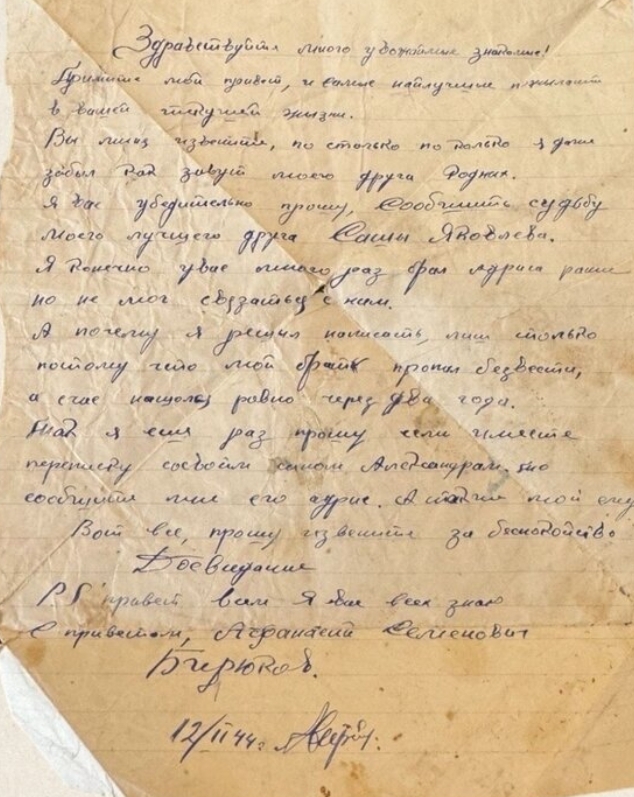 Здравствуйти много уважаимые знакомые!
Примите мой привет, и самые наилучшие пожелания
в вашей текущей жизни.
Вы миня извените, по столько по колько я даже
забыл как завут моего друга Родных.
Я вас убедительно прошу, сообщить судьбу
моего лучшего друга Саши Яковлева.
Я конечно увас много раз брал адриса ранее
но не мог свезаться с ним.
А почему я решил написать, лиш столько
потому что мой братк пропал безвести,
а счас нашолс ровно через два года.
Так я ещя раз прошу если имеете
переписку сосвоим сыном Александрам. то
сообщите мне его адрис. А также мой ему
Вот все, прошу извените за беспокойство
Досвидание
P.S. привет всем Я вас всех знаю
С приветом, Афанасий Семенович
Бирюков.
12/II 44г.